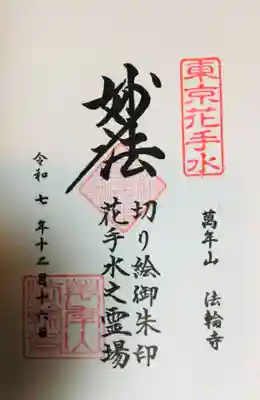 東京花手水
萬年山 法輪寺
妙法
切り絵御朱印
花手水之霊場
令和七年十二月十六日